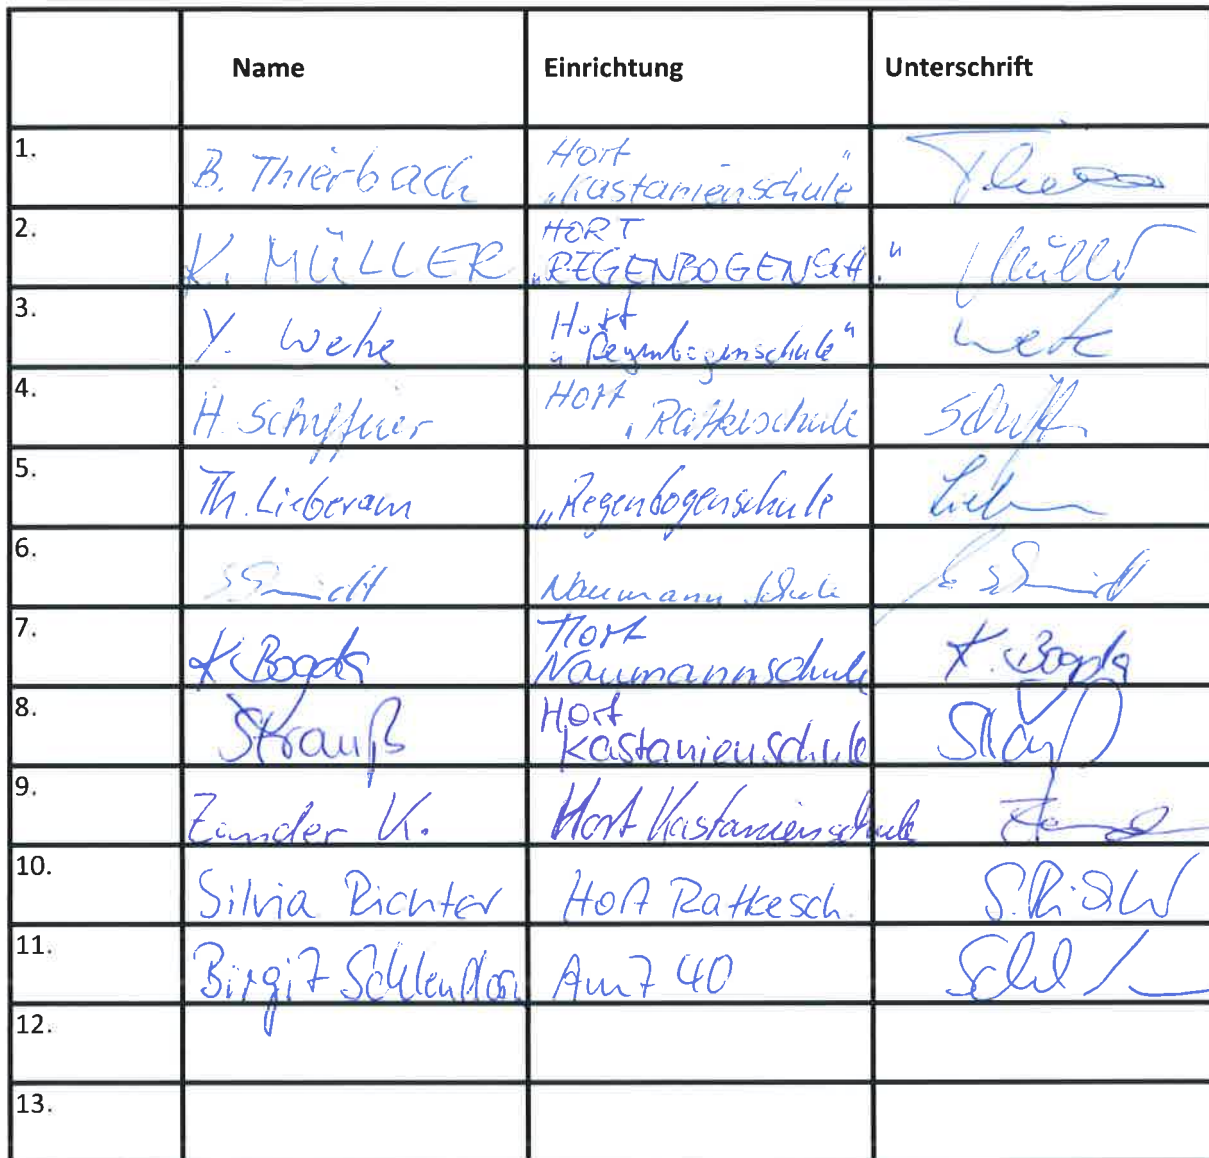 Name Einrichtung Unterschrift
1. B. Thierbach Hort "Kastanienschule"
2. K. MÜLLER HORT "REGENBOGENSCH." Müller
3. Y. Wehe Hort "Regenbogenschule" Wehe
4. H. Schiffner Hort Ratkeschule Schiff
5. Th. Lieberam "Regenbogenschule
6. Schmidt Naumann Schule Schmidt
7. K. Bogda Hort Naumannschule K. Bogda
8. Strauß Hort Kastanienschule Strauß
9. Zander K. Hort Kastanienschule
10. Silvia Richter Hort Ratkesch. S. Richter
11. Birgit Amt 40
12.
13.